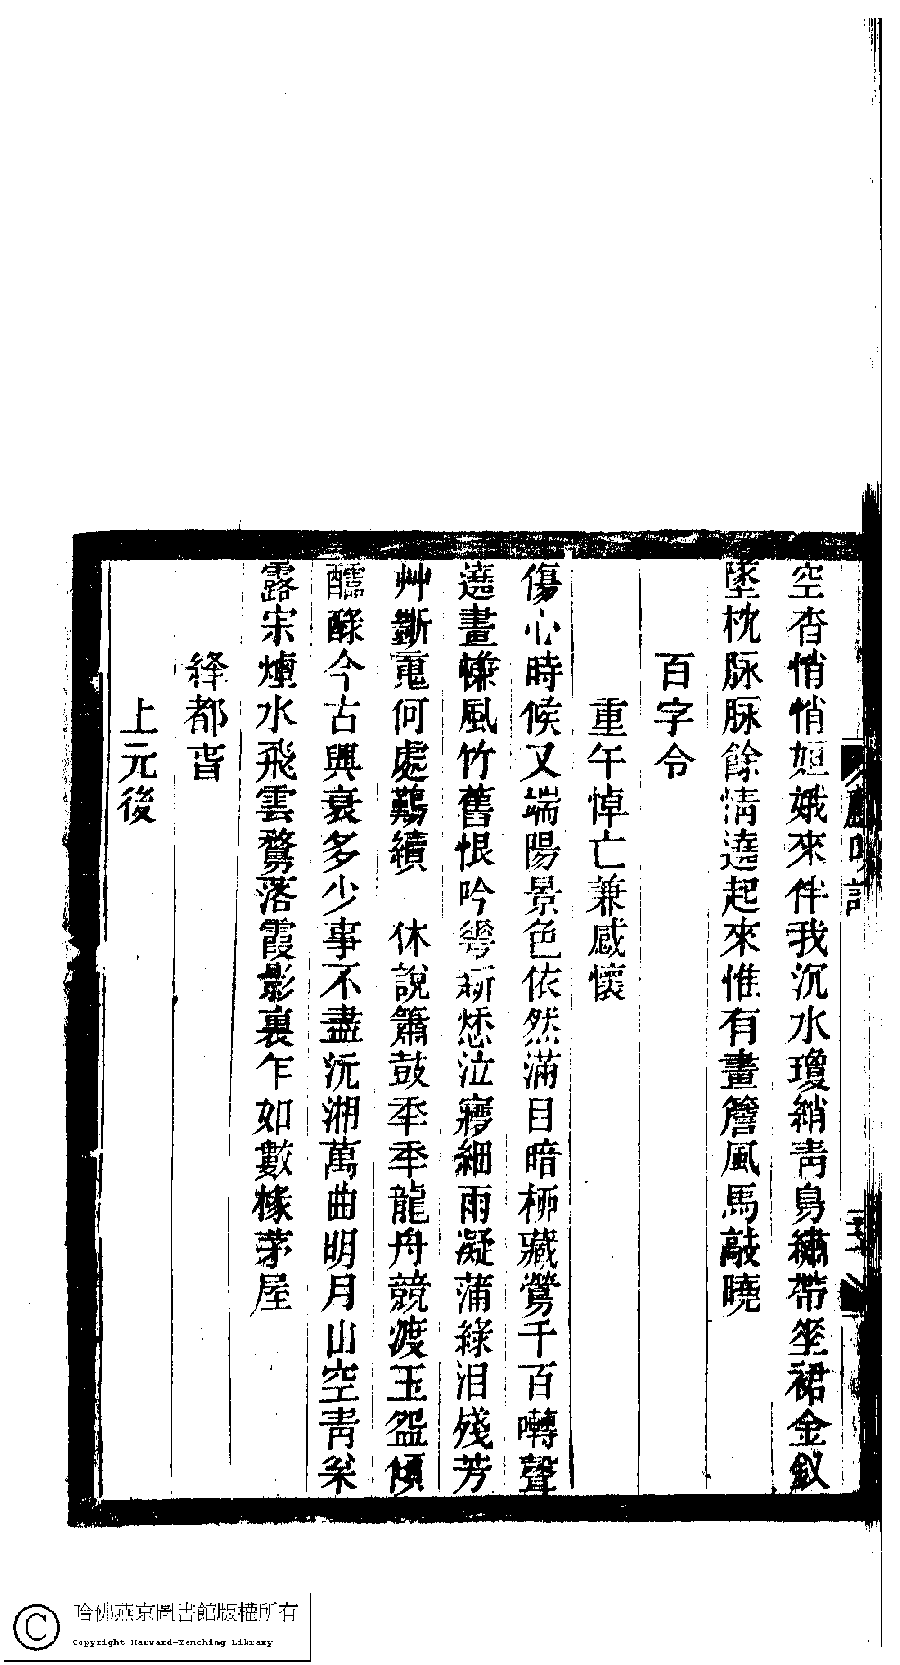 空杳悄悄姮娥來伴我沉水瓊綃靑鳥繡帶𡋲裙金釵
墜枕脉脉餘情遶起來惟有畫簷風馬敲曉
百字令
重午悼亡兼感懷
傷心時候又端陽景色依然滿目暗栁藏鶯千百囀聲
遶畫㡘風竹舊恨吟新愁泣寢細雨凝蒲綠泪殘芳
艸斷䰟何處鷄續　休說簫鼓秊秊龍舟競渡玉㿿傾
醽醁今古興衰多少事不盡沅湘萬曲明月山空靑
露宋煙水飛雲鶩落霞影裏乍如數椽茅屋
絳都𣅀
上元後
哈佛燕京圖書館版權所有
Copyright Harvard-Yenching Library